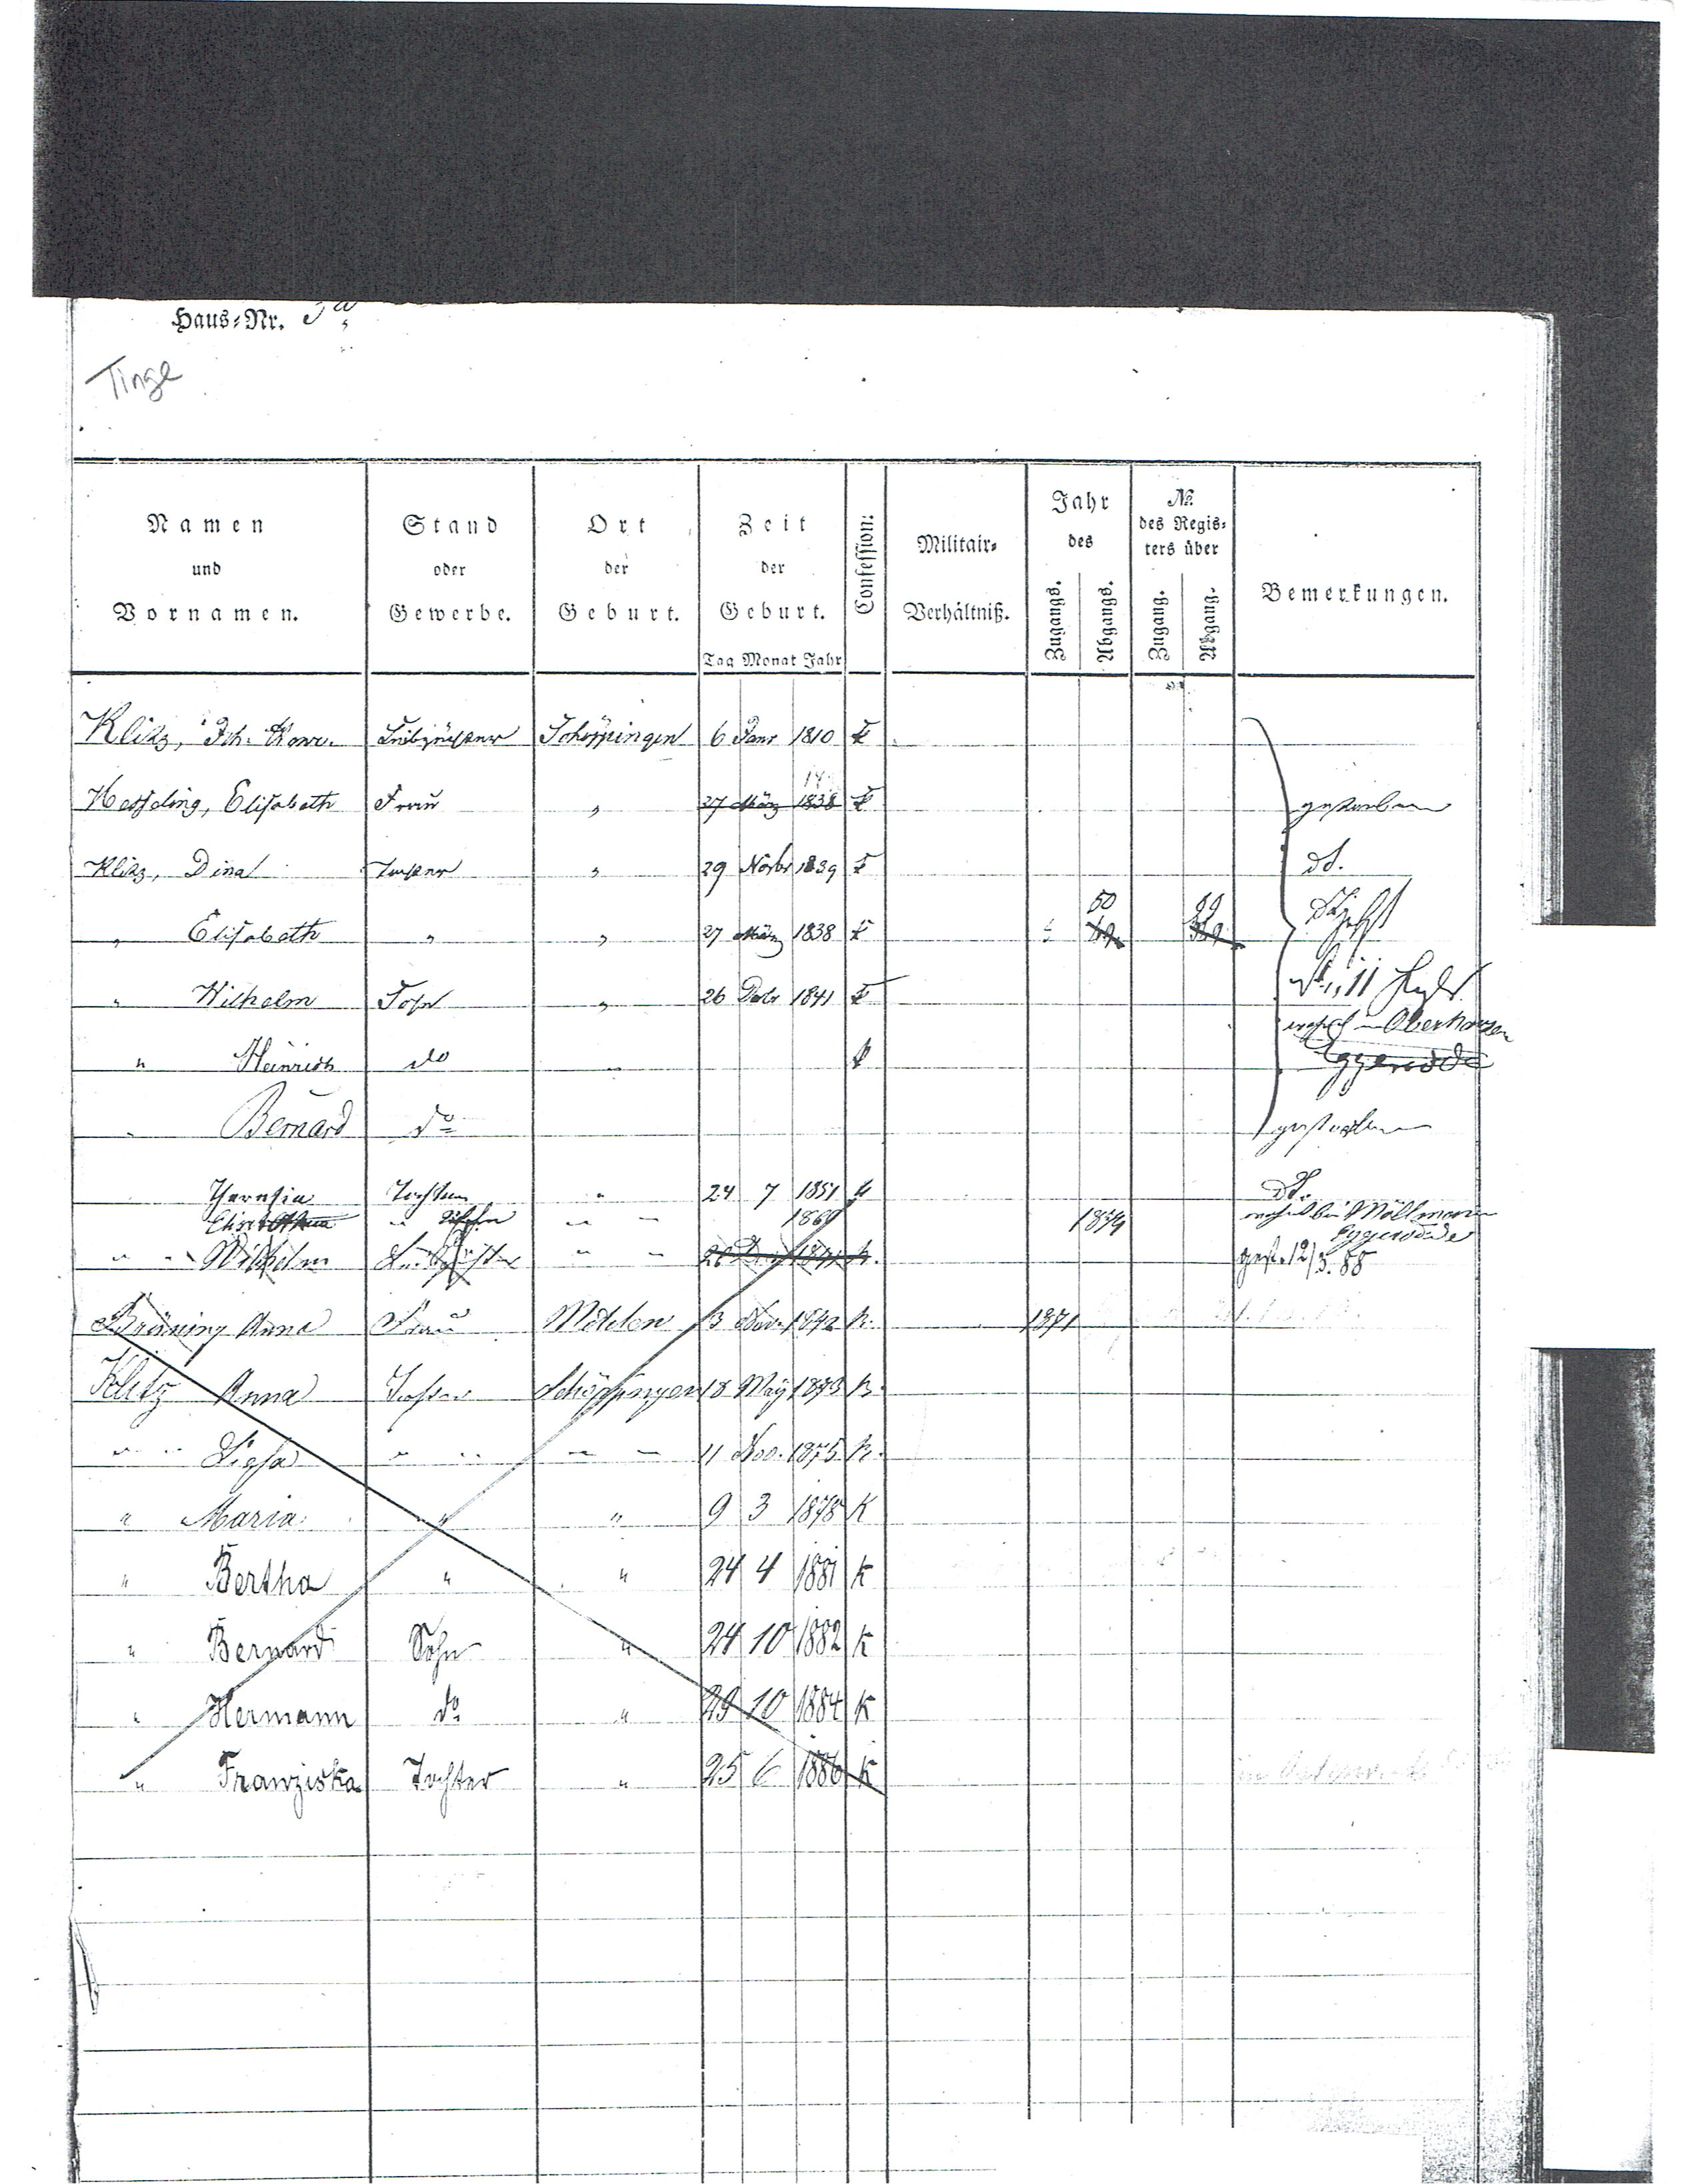 Haus-Nr.
Tinge
Namen und Vornamen. Stand oder Gewerbe. Ort der Geburt. Zeit der Geburt. Tag Monat Jahr Confession: Militair-Verhältniß. Jahr des Zugangs. Abgangs. № des Registers über Zugang. Abgang. Bemerkungen.
Klitz, Joh. Schöppingen 6 Janr 1810 K
Hessling, Elisabeth Frau " 27 März 1838 K gestorben
Klitz, Dina Tochter " 29 Novbr 1839 K do.
" Elisabeth " " 27 März 1838 K 50
" Wilhelm Sohn " 26 Debr 1841 K
Oberhausen
" Heinrich do " K Eggerode
" Bernard do gestorben
Theresia Tochter " 24 7 1851 K do.
Elisabeth " " " 1869 1879 Möllmann
Eggerode
" " Wilhelm " " 1841 K. gest. 12/3. 88
Bröning Anna Frau Metelen 3 Nov. 1842 K. 1871
Klitz Anna Tochter Schöppingen 18 May 1873 K.
" " Lisa " " " " 11 Nov. 1875 K.
" Maria " " 9 3 1878 K
" Bertha " " 24 4 1881 K
" Bernard Sohn " 24 10 1882 K
" Hermann do " 29 10 1884 K
" Franziska Tochter " 25 6 1886 K